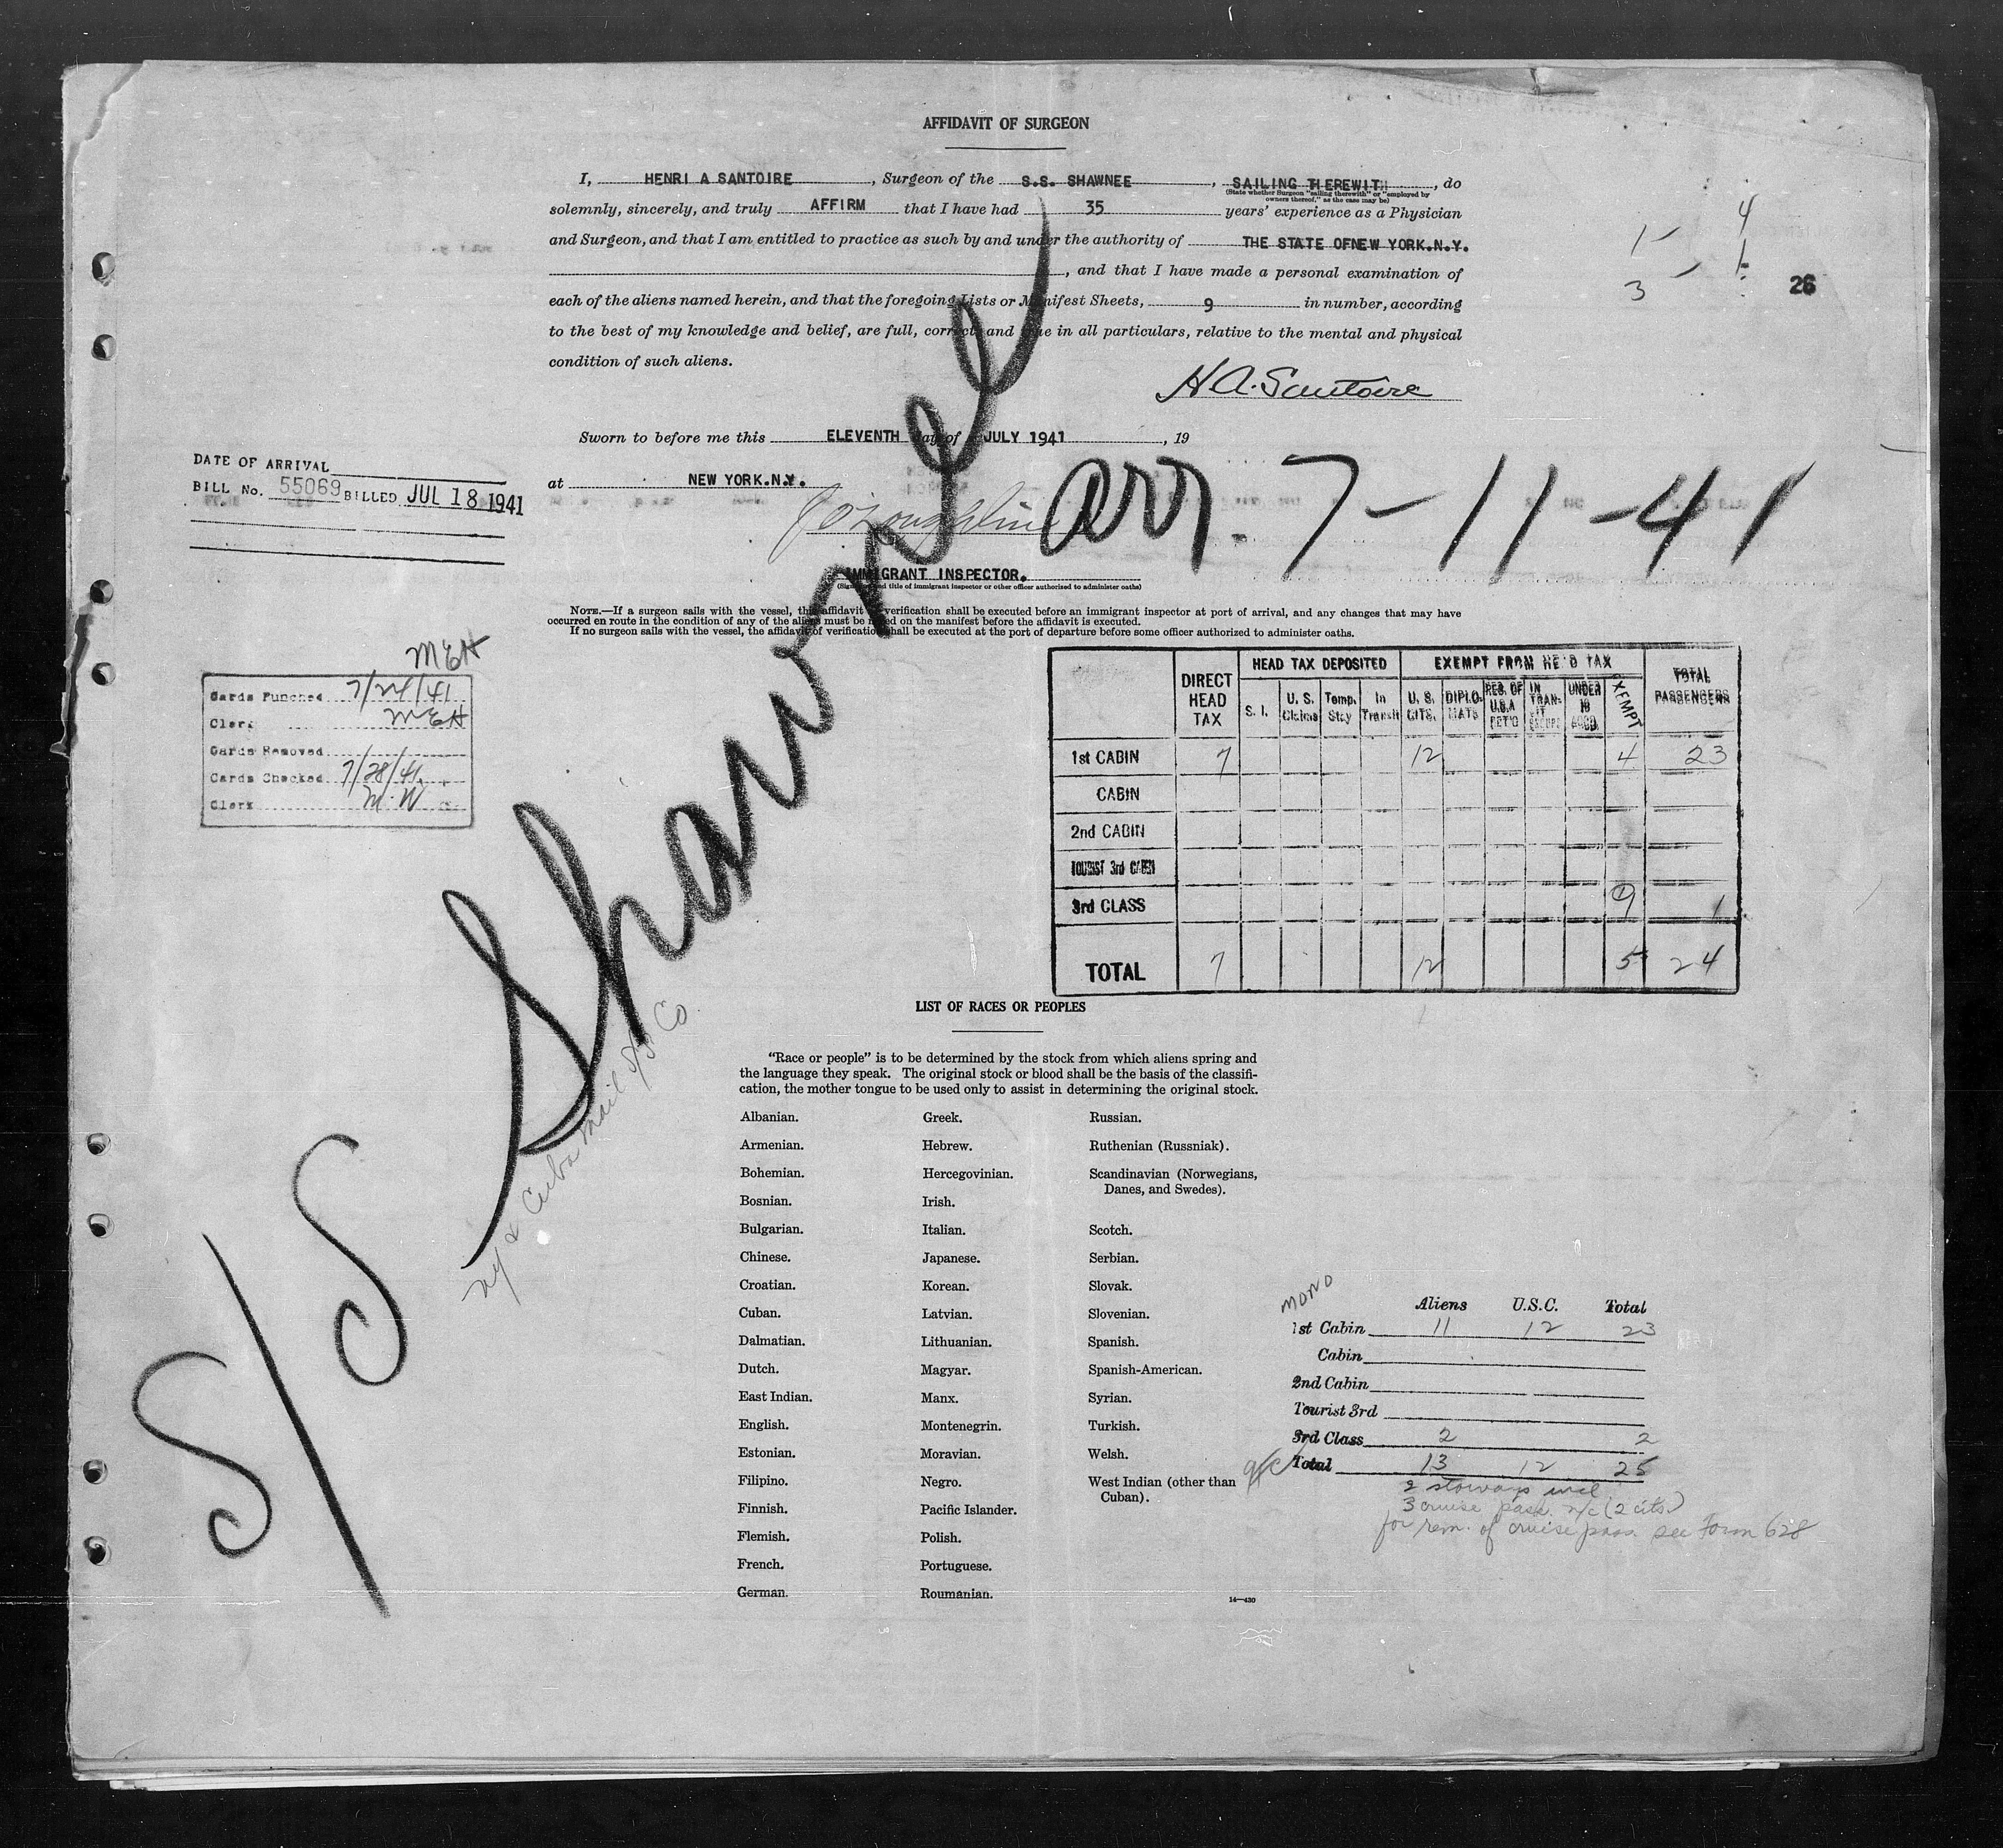 AFFIDAVIT OF SURGEON
I, HENRI A SANTOIRE, Surgeon of the S.S. SHAWNEE, SAILING THEREWITH, do
(State whether Surgeon "sailing therewith" or "employed by owners thereof," as the case may be)
solemnly, sincerely, and truly AFFIRM that I have had 35 years' experience as a Physician
and Surgeon, and that I am entitled to practice as such by and under the authority of THE STATE OFNEW YORK.N.Y.
, and that I have made a personal examination of
each of the aliens named herein, and that the foregoing Lists or Manifest Sheets, 9 in number, according
to the best of my knowledge and belief, are full, correct, and true in all particulars, relative to the mental and physical
condition of such aliens.
4
1
1
3
26
H.A. Santoire
Sworn to before me this ELEVENTH day of JULY 1941, 19
at NEW YORK.N.Y.
IMMIGRANT INSPECTOR.
(Signature and title of immigrant inspector or other officer authorized to administer oaths)
DATE OF ARRIVAL
BILL No. 55069 BILLED JUL 18 1941
arr. 7-11-41
S/S Shawnee
NY & Cuba Mail S/S Co
NOTE.—If a surgeon sails with the vessel, this affidavit of verification shall be executed before an immigrant inspector at port of arrival, and any changes that may have
occurred en route in the condition of any of the aliens must be noted on the manifest before the affidavit is executed.
If no surgeon sails with the vessel, the affidavit of verification shall be executed at the port of departure before some officer authorized to administer oaths.
MEH
Cards Punched 7/24/41
Clerk MEH
Cards Removed
Cards Checked 7/28/41
Clerk M.W
DIRECT HEAD TAX HEAD TAX DEPOSITED EXEMPT FROM HE'D TAX TOTAL PASSENGERS
S. I. U. S. Claims Temp. Stay In Transit U. S. CITS. DIPLO. MATS RES. OF U.S.A RET'D IN TRANSIT UNDER 16 EXEMPT
1st CABIN 7 12 4 23
CABIN
2nd CABIN
TOURIST 3rd CABIN
3rd CLASS 1
TOTAL 7 12 5 24
LIST OF RACES OR PEOPLES
"Race or people" is to be determined by the stock from which aliens spring and
the language they speak. The original stock or blood shall be the basis of the classifi-
cation, the mother tongue to be used only to assist in determining the original stock.
Albanian.
Armenian.
Bohemian.
Bosnian.
Bulgarian.
Chinese.
Croatian.
Cuban.
Dalmatian.
Dutch.
East Indian.
English.
Estonian.
Filipino.
Finnish.
Flemish.
French.
German.
Greek.
Hebrew.
Hercegovinian.
Irish.
Italian.
Japanese.
Korean.
Latvian.
Lithuanian.
Magyar.
Manx.
Montenegrin.
Moravian.
Negro.
Pacific Islander.
Polish.
Portuguese.
Roumanian.
Russian.
Ruthenian (Russniak).
Scandinavian (Norwegians,
Danes, and Swedes).
Scotch.
Serbian.
Slovak.
Slovenian.
Spanish.
Spanish-American.
Syrian.
Turkish.
Welsh.
West Indian (other than
Cuban).
14—430
MONO
Aliens U.S.C. Total
1st Cabin 11 12 23
Cabin
2nd Cabin
Tourist 3rd
3rd Class 2 2
Total 13 12 25
2 stoways incl
3 cruise pass. n/c (2 cits.)
for rem. of cruise pass. see Form 628